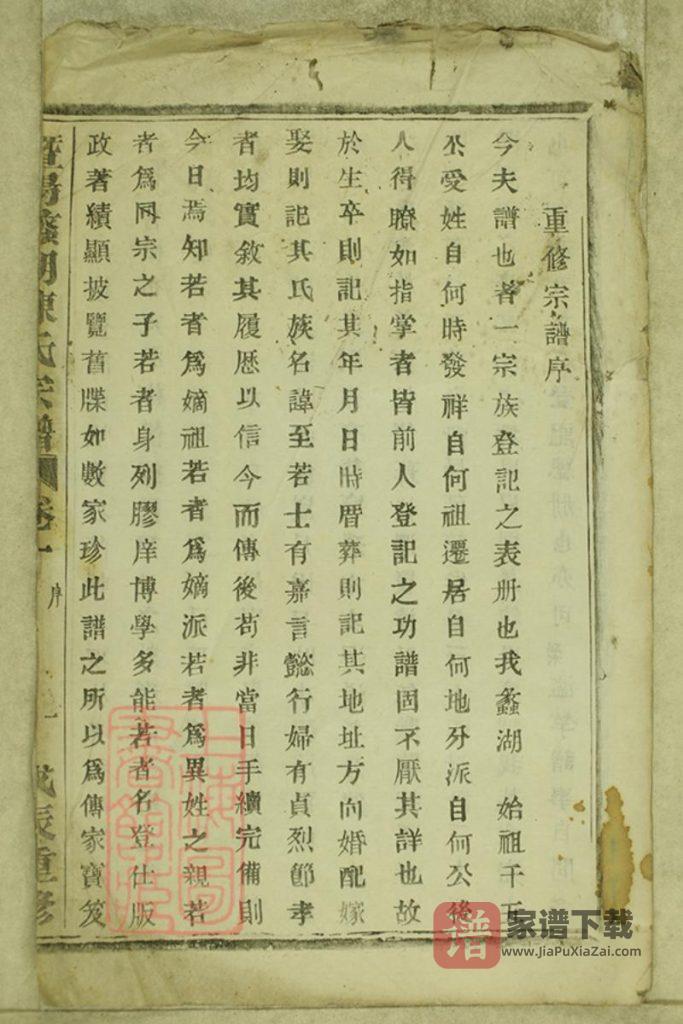 重修宗譜序
今夫譜也者一宗族登記之表册也我蠡湖 始祖千五
公受姓自何時發祥自何祖遷居自何地分派自何公後
人得瞭如指掌者皆前人登記之功譜固不厭其詳也故
於生卒則記其年月日時厝葬則記其地址方向婚配嫁
娶則記其氏族名諱至若士有嘉言懿行婦有貞烈節孝
者均實敘其履歷以信今而傳後苟非當日手續完備則
今日焉知若者爲嫡祖若者爲嫡派若者爲異姓之親若
者爲同宗之子若者身列膠庠博學多能若者名登仕版
政著績顯披覽舊牒如數家珍此譜之所以爲傳家寶笈
暨陽蠡湖陳氏宗譜 卷一 序 一 戊辰重修
譜 家谱下载
www.JiaPuXiaZai.com